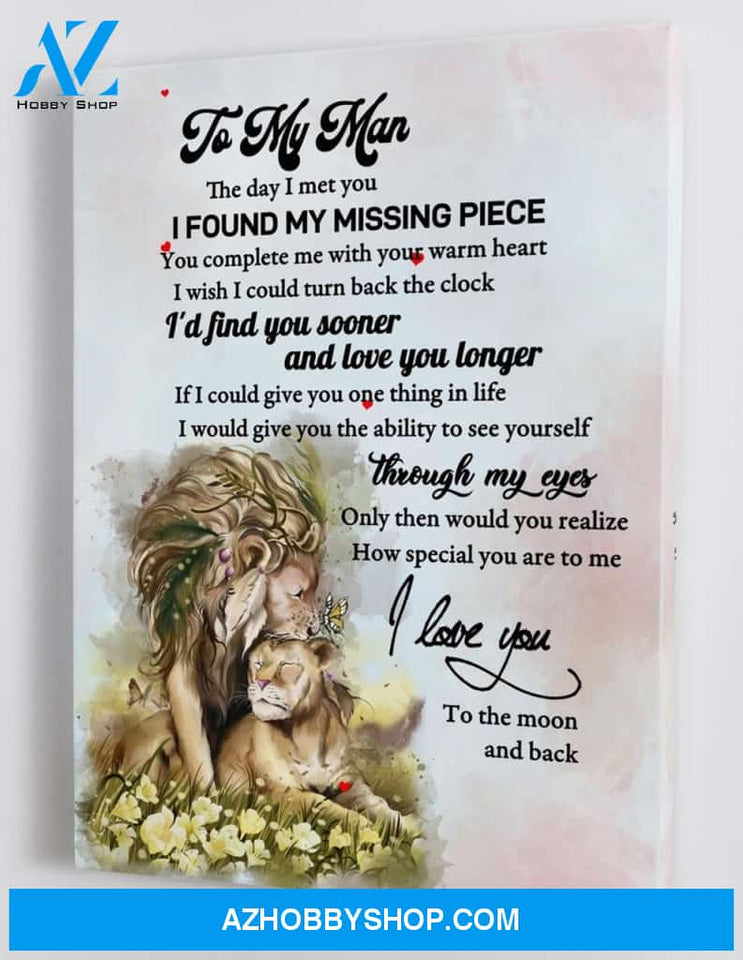 AZ
HOBBY SHOP
To My Man
The day I met you
I FOUND MY MISSING PIECE
You complete me with your warm heart
I wish I could turn back the clock
I'd find you sooner
and love you longer
If I could give you one thing in life
I would give you the ability to see yourself
through my eyes
Only then would you realize
How special you are to me
I love you
To the moon
and back
AZHOBBYSHOP.COM